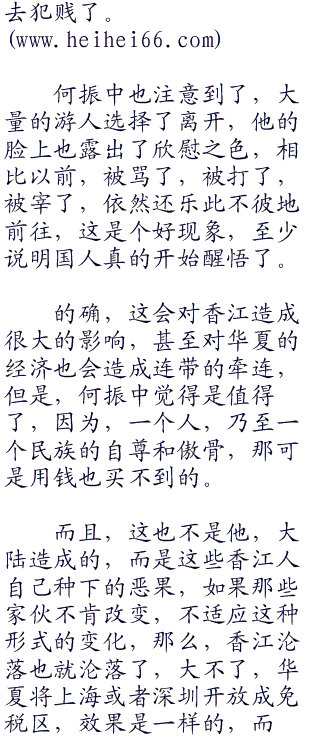 去犯贱了。
(www.heihei66.com)
何振中也注意到了，大
量的游人选择了离开，他的
脸上也露出了欣慰之色，相
比以前，被骂了，被打了，
被宰了，依然还乐此不彼地
前往，这是个好现象，至少
说明国人真的开始醒悟了。
的确，这会对香江造成
很大的影响，甚至对华夏的
经济也会造成连带的牵连，
但是，何振中觉得是值得
了，因为，一个人，乃至一
个民族的自尊和傲骨，那可
是用钱也买不到的。
而且，这也不是他，大
陆造成的，而是这些香江人
自己种下的恶果，如果那些
家伙不肯改变，不适应这种
形式的变化，那么，香江沦
落也就沦落了，大不了，华
夏将上海或者深圳开放成免
税区，效果是一样的，而